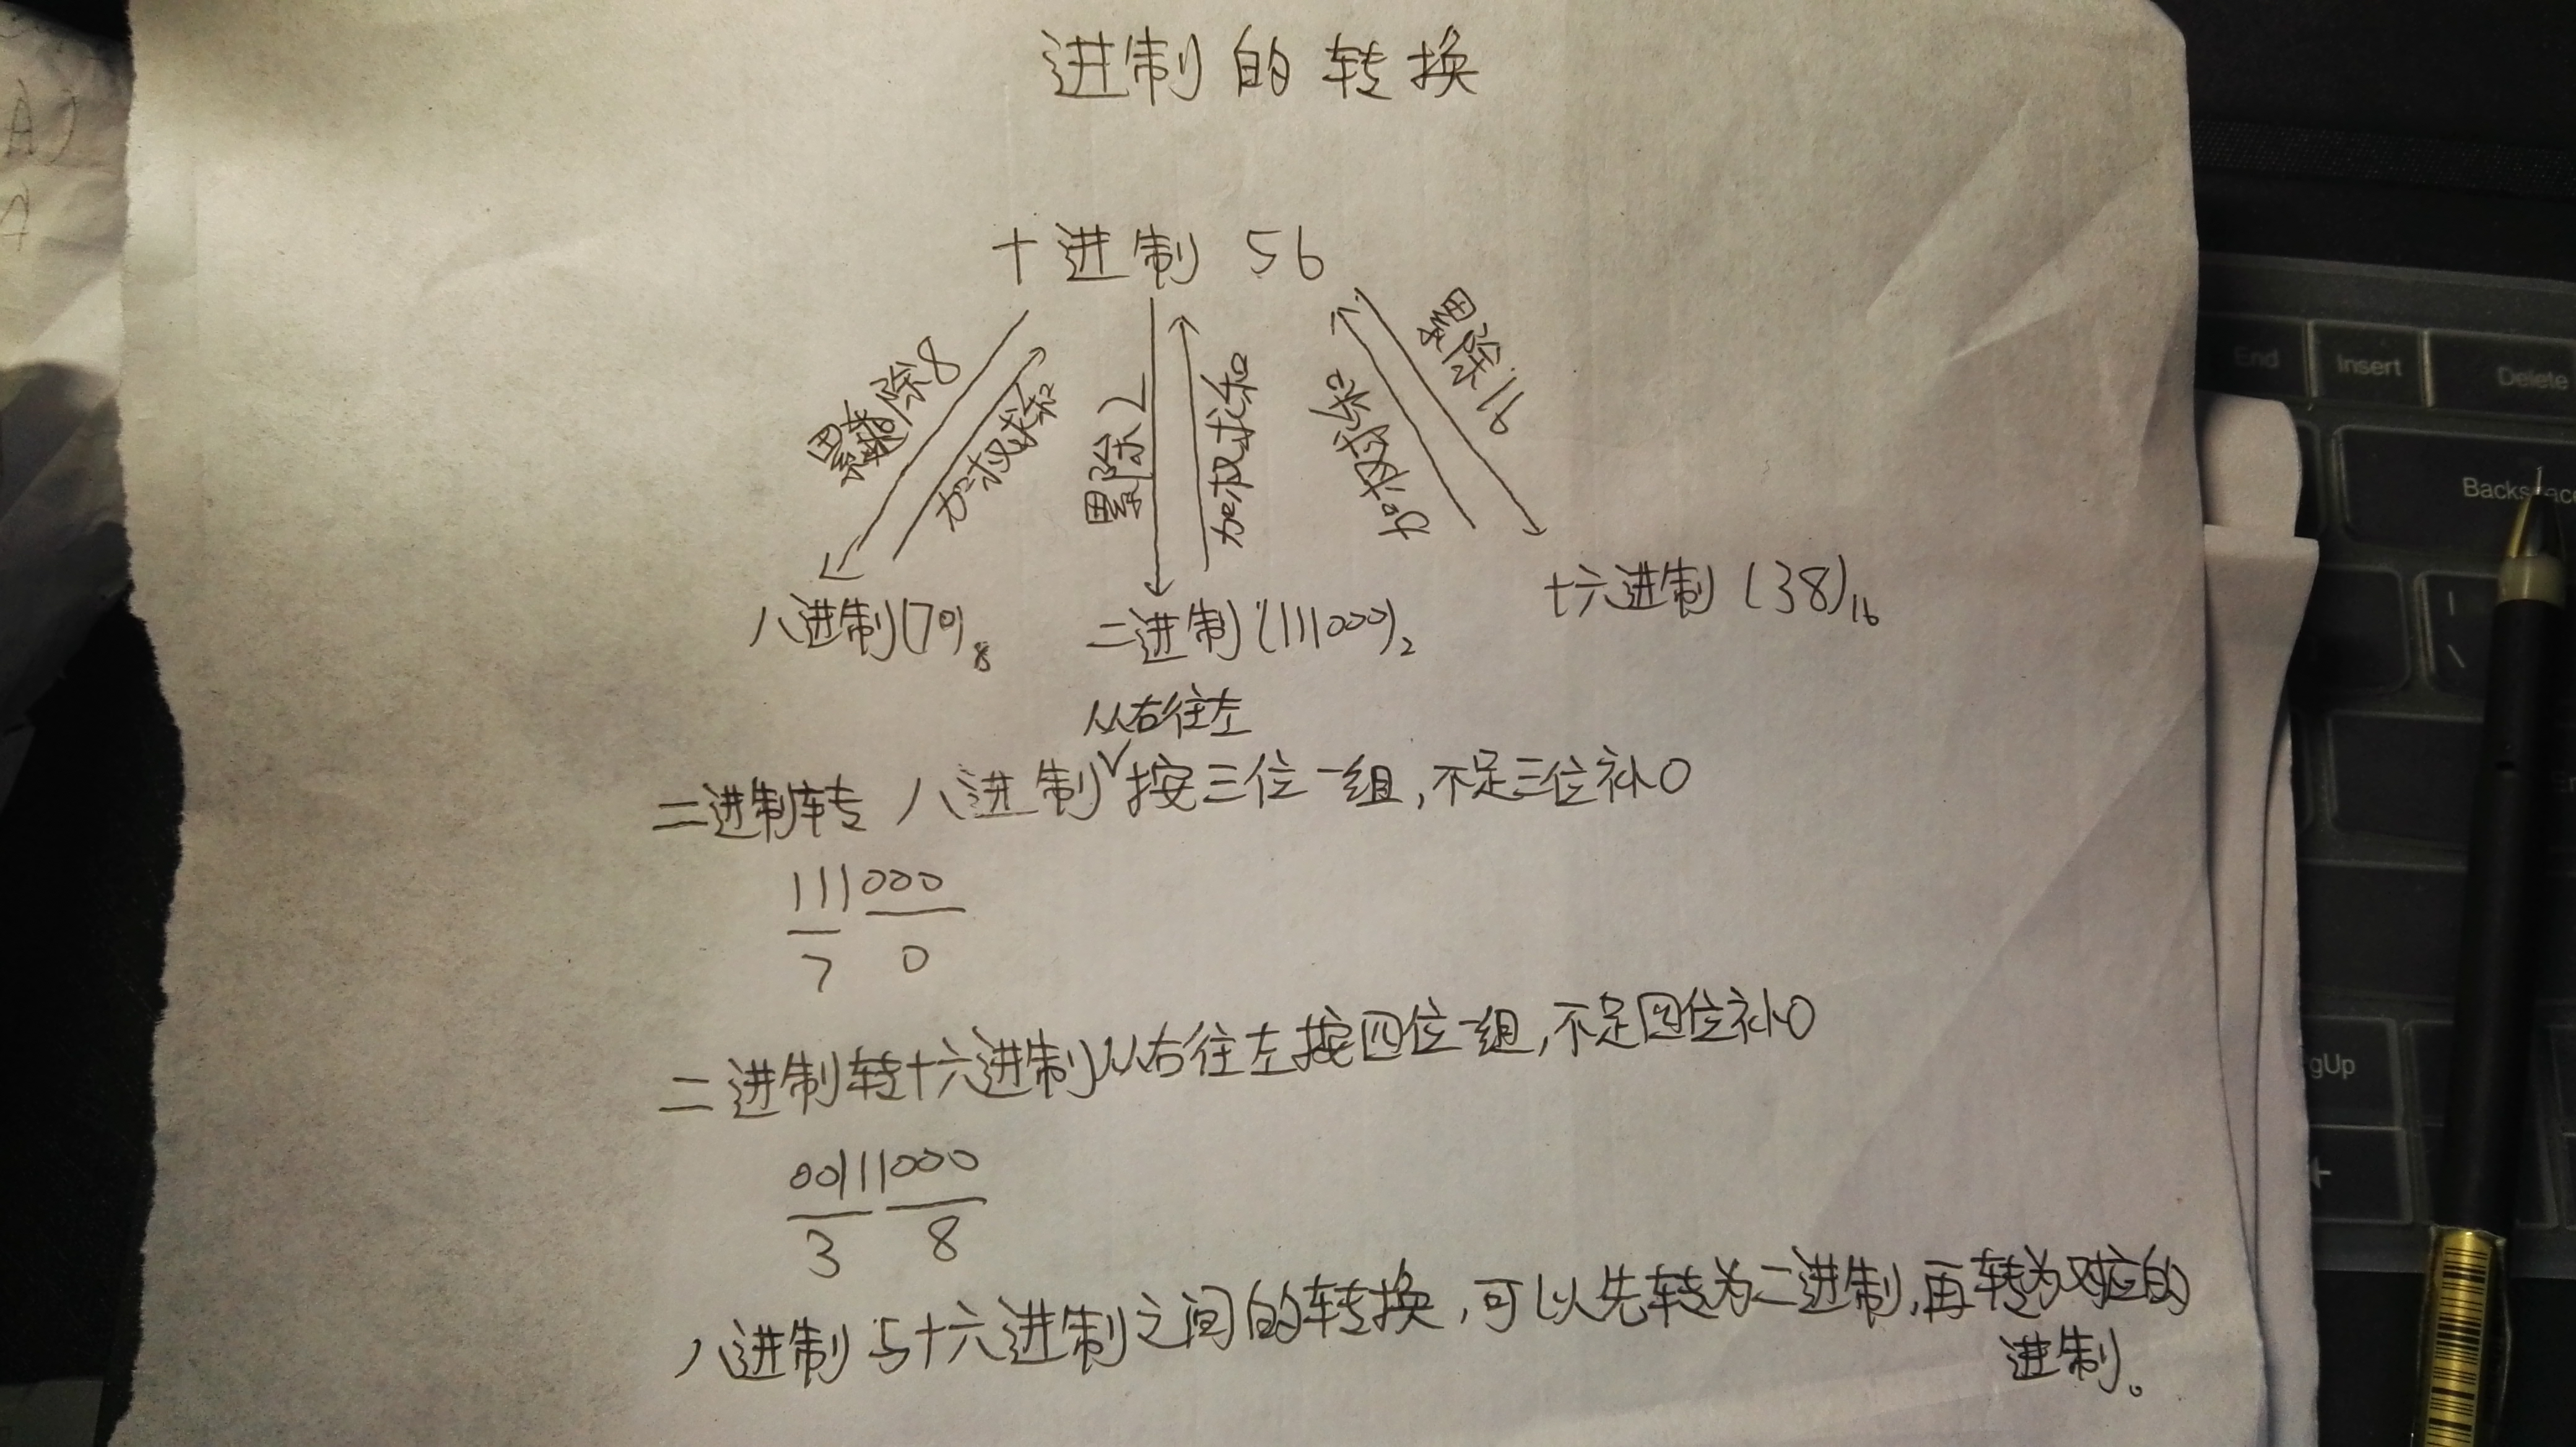 进制的转换
十进制 56
累除8
加权求和
累除2
加权求和
加权求和
累除16
八进制(70)8
二进制(111000)2
十六进制(38)16
从右往左
二进制转八进制∨按三位一组,不足三位补0
111000
7 0
二进制转十六进制从右往左按四位一组,不足四位补0
00111000
3 8
八进制与十六进制之间的转换,可以先转为二进制,再转为对应的
进制。
End
Insert
Delete
Backspace
gUp
A)